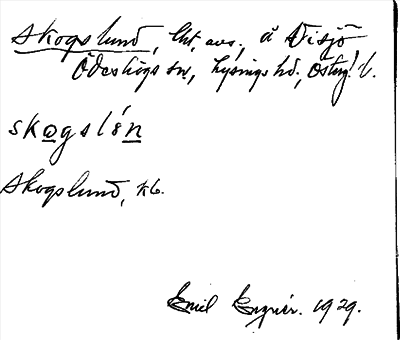 Skogslund, lht, avs., å Disjö
Ödeshögs sn, Lysings hd, Östergl. l.
skogslön
Skogslund, kb.
Emil 1929.